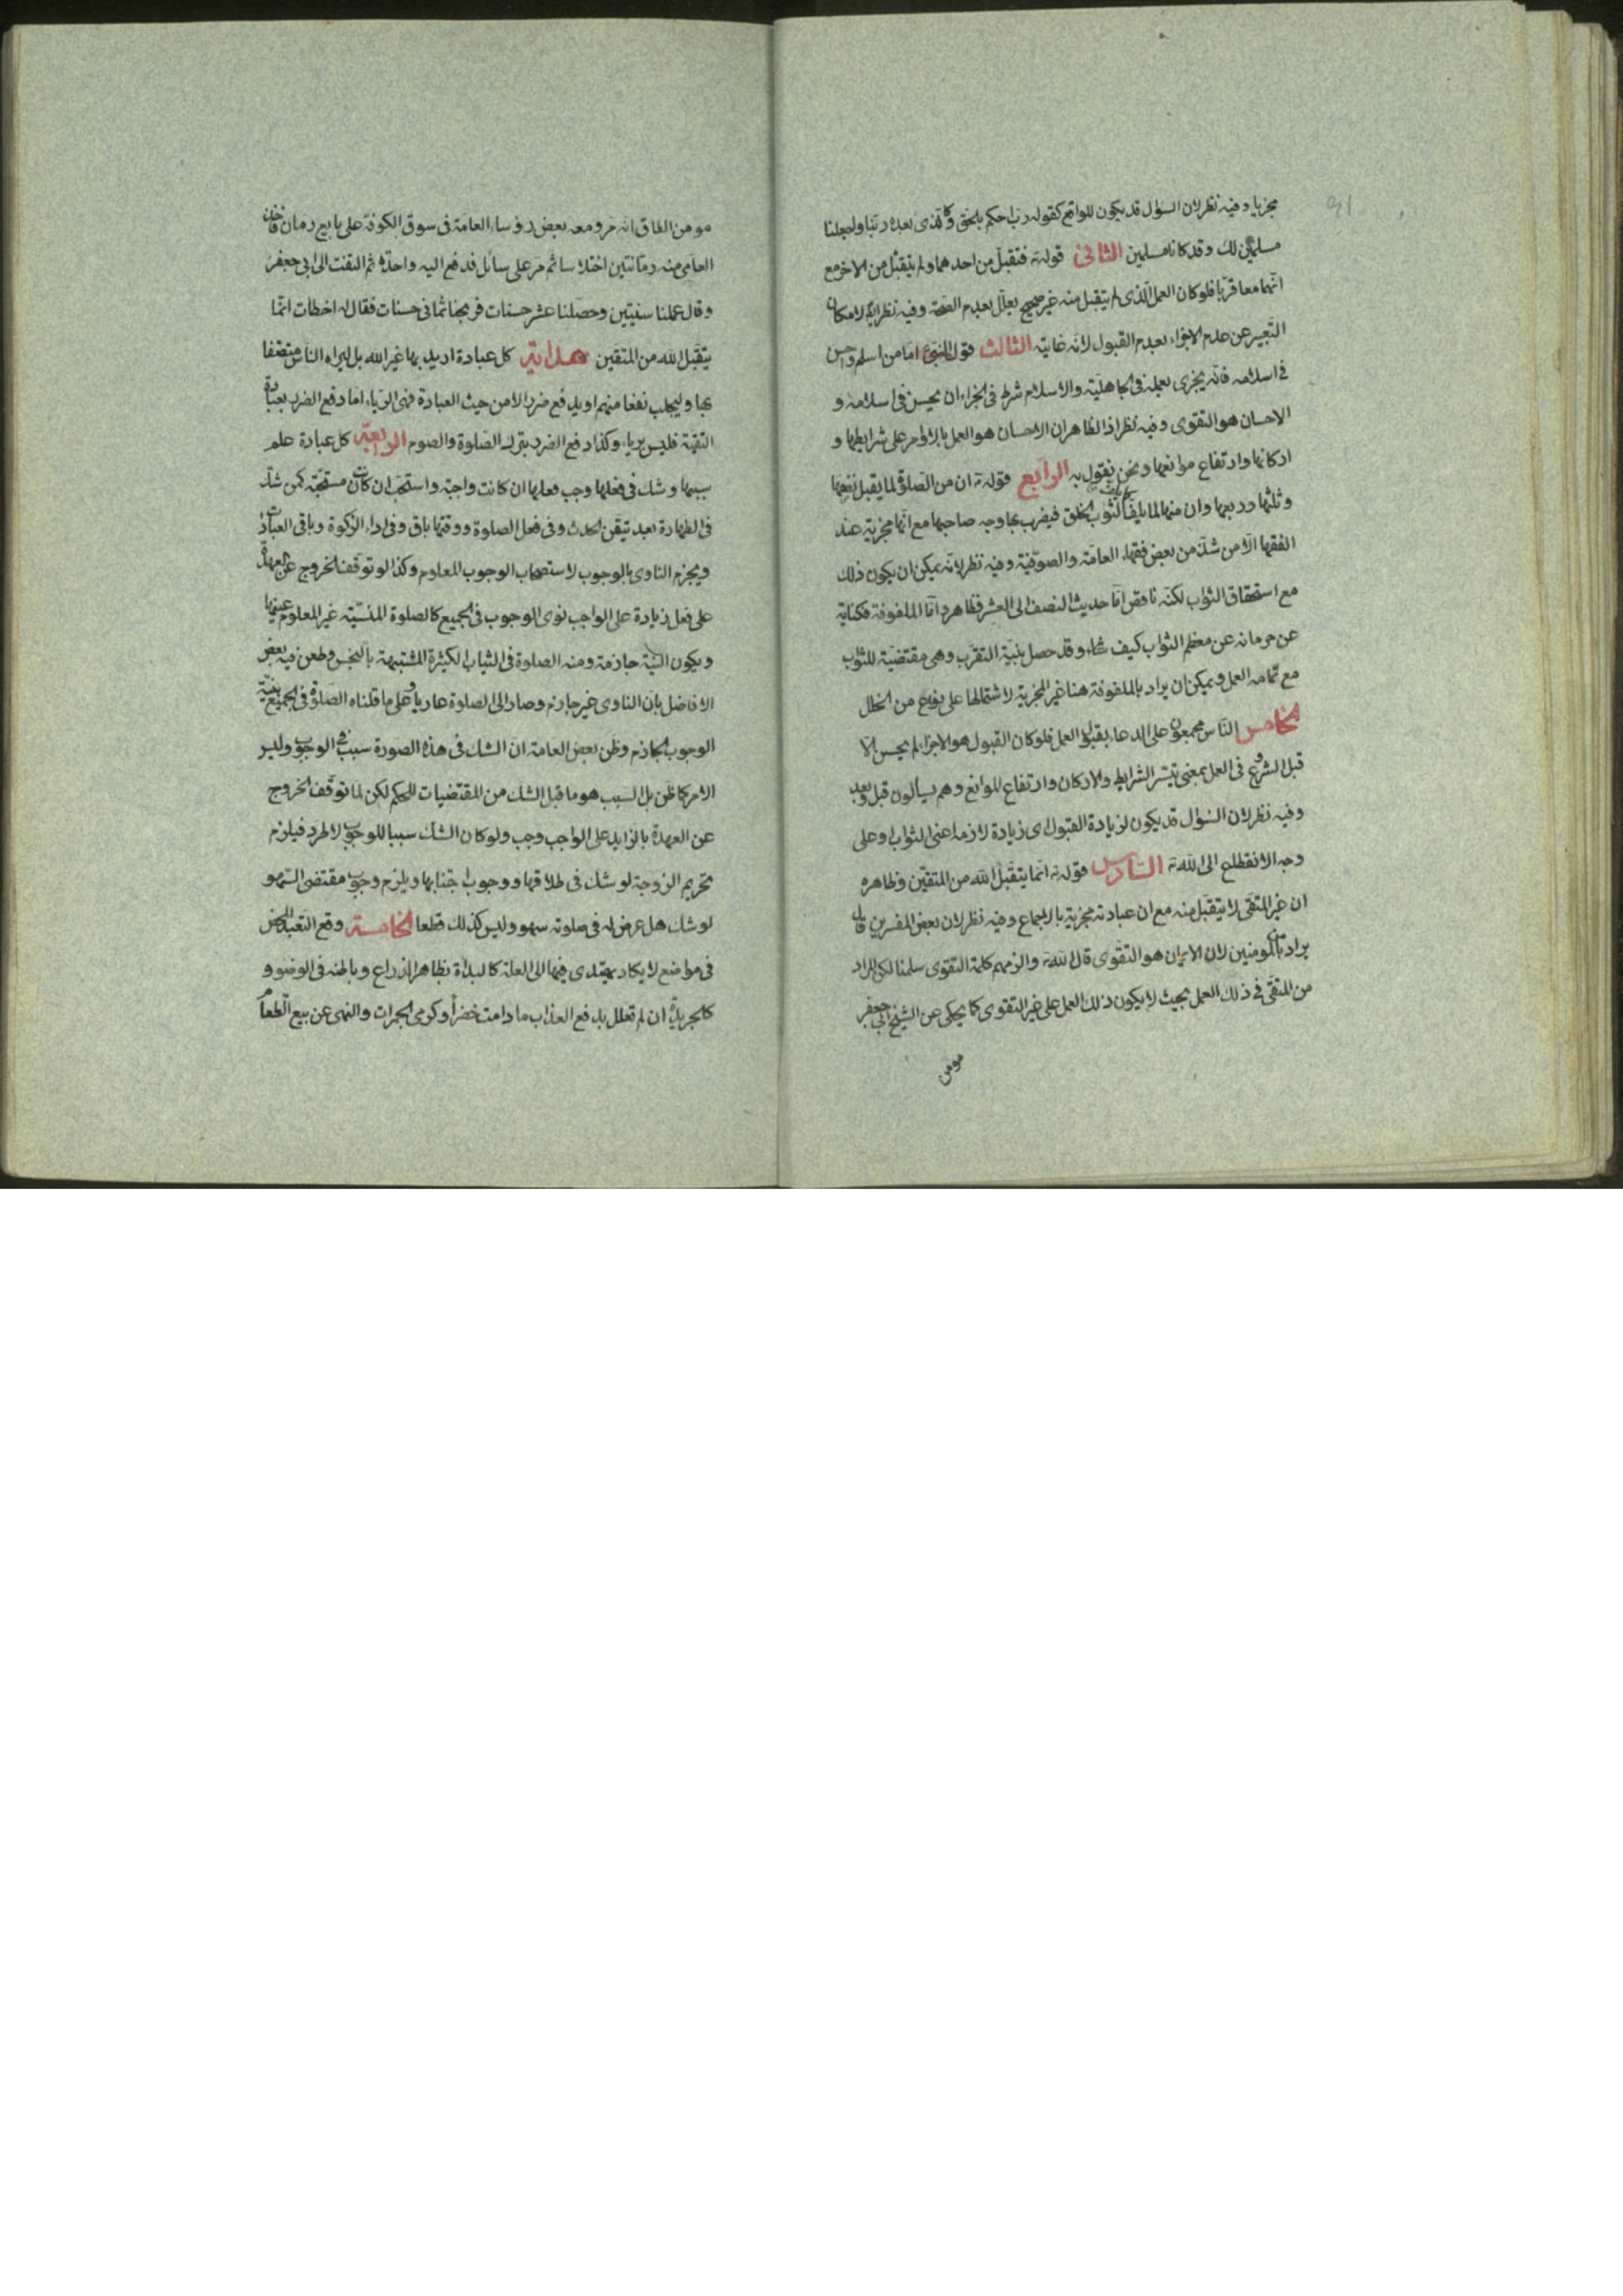 مجزيا وفيه نظر لان السؤال قد يكون للواقع كقوله رب احكم بالحق وكالذى بعده ربنا واجعلنا
مسلمين لك وقد كانا مسلمين الثانى قوله تہ فتقبل من احدهما ولم يتقبل من الاخر مع
انهما معا قربا فلو كان العمل الذى لم يتقبل منه غير صحيح يعلل بعدم الصحة وفيه نظر لامكان
التعبير عن عدم الاجزاء بعدم القبول لانه غايته الثالث قول النبى ع اما من اسلم واحسن
فى اسلامه فانه يجزى بعمله فى الجاهلية والاسلام شرط فى الجزاء ان يحسن فى اسلامه و
الاحسان هو التقوى وفيه نظر اذ الظاهر ان الاحسان هو العمل بالاوامر على شرايطها و
اركانها وارتفاع موانعها ونحن نقول به الرابع قوله تہ ان من الصلوة لما يقبل نصفها
وثلثها وربعها وان منها لما يلف كما يلف الثوب الخلق فيضرب بها وجه صاحبها مع انها مجزية عند
الفقها الا من شذ من بعض فقهاء العامة والصوفية وفيه نظر لانه يمكن ان يكون ذلك
مع استحقاق الثواب لكنه ناقص اما حديث النصف الى العشر فظاهر واما الملفوفة فكناية
عن حرمانه عن معظم الثواب كيف شاء وقد حصل بنية التقرب وهى مقتضية للثواب
مع تمامه العمل ويمكن ان يراد بالملفوفة هنا غير المجزية لاشتمالها على نوع من الخلل
الخامس الناس مجمعون على الدعاء بقبول العمل فلو كان القبول هو الاجزاء لم يحسن الا
قبل الشروع فى العمل بمعنى تيسر الشرايط والاركان وارتفاع الموانع وهم يسألون قبل وبعد
وفيه نظر لان السؤال قد يكون لزيادة القبول اى زيادة لازمه اعنى الثواب او على
وجه الانقطاع الى الله تہ السادس قوله تہ انما يتقبل الله من المتقين وظاهره
ان غير المتقى لا يتقبل منه مع ان عبادته مجزية بالاجماع وفيه نظر لان بعض المفسرين قال
يراد بالمومنين لان الايمان هو التقوى قال الله تہ والزمهم كلمة التقوى سلمنا لكن المراد
من المتقى فى ذلك العمل بحيث لا يكون ذلك العمل على غير التقوى كما يحكى عن الشيخ ابى جعفر
مومن
مومن الطاق انه مر ومعه بعض روساء العامة فى سوق الكوفة على بايع رمان فاخذ
العامى منه رمانتين اختلاسا ثم مر على سائل فدفع اليه واحدة ثم التفت الى ابى جعفر
وقال عملنا سيئتين وحصلنا عشر حسنات فربحنا ثمانى حسنات فقال له اخطات انما
يتقبل الله من المتقين هداية كل عبادة اريد بها غير الله بل ليراه الناس متصفا
بها وليجلب نفعا منهم او يدفع ضررا لا من حيث العبادة فهى الرياء اما دفع الضرر بعبادة
التقية فليس برياء وكذا دفع الضرر بترك الصلوة والصوم الرابعة كل عبادة علم
سببها وشك فى فعلها وجب فعلها ان كانت واجبة واستحب ان كانت مستحبة كمن شك
فى الطهارة بعد تيقن الحدث وفى فعل الصلوة ووقتها باق وفى اداء الزكوة وباقى العبادات
ويجزم الناوى بالوجوب لاستصحاب الوجوب المعلوم وكذا لو توقف الخروج عن العهدة
على فعل زيادة على الواجب نوى الوجوب فى الجميع كالصلوة المنسية غير المعلوم عينها
ويكون النية جازمة ومنه الصلوة فى الثياب الكثيرة المشتبهة بالنجس وطعن فيه بعض
الافاضل بان الناوى غير جازم وصار الى الصلوة عاريا وعلى ما قلناه الصلوة فى الجميع بنية
الوجوب الجازم وظن بعض العامة ان الشك فى هذه الصورة سبب فى الوجوب وليس
الامر كما ظن بل السبب هو ما قبل الشك من المقتضيات للحكم لكن لما توقف الخروج
عن العهدة بالزايد على الواجب وجب ولو كان الشك سببا للوجوب لاطرد فيلزم
تحريم الزوجة لو شك فى طلاقها ووجوب اجتنابها ويلزم وجوب مقتضى السهو
لو شك هل عرض له فى صلوته سهو وليس كذلك قطعا الخامسة وقع التعبد المحض
فى مواضع لا يكاد يهتدى فيها الى العلة كالبدأة بظاهر الذراع وباطنه فى الوضو و
كالجريدة ان لم تعلل بدفع العذاب ما دامت خضرا وكرمى الجمرات والنهى عن بيع الطعام